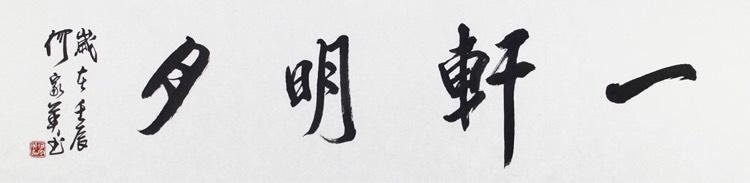 一軒明夕
歲在壬辰
何家英书